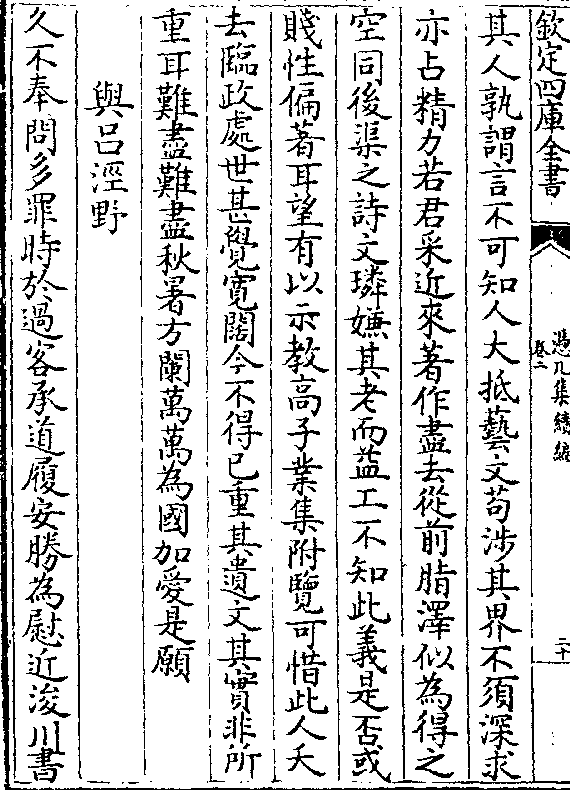 欽定四庫全書
憑几集續編
卷二
二十
其人孰謂言不可知人大抵藝文苟涉其界不須深求
亦占精力若君采近來著作盡去從前脂澤似為得之
空同後渠之詩文璘嫌其老而益工不知此義是否或
賤性偏著耳望有以示教高子業集附覽可惜此人夭
去臨政處世甚覺寛闊今不得已重其遺文其實非所
重耳難盡難盡秋署方闌萬萬為國加愛是願
與吕涇野
久不奉問多罪時於過客承道履安勝為慰近浚川書